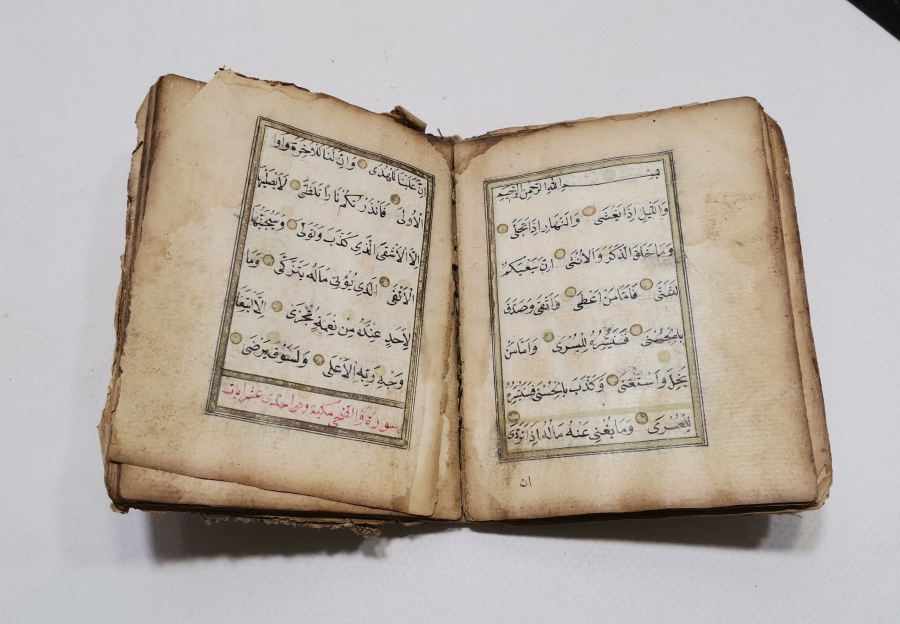 بِسْــمِ اللهِ الرَّحْمٰنِ الرَّحِيمِ
وَاللَّيْلِ اِذَا يَغْشٰى وَالنَّهَارِ اِذَا تَجَلّٰى
وَمَا خَلَقَ الذَّكَرَ وَالْاُنْثٰى اِنَّ سَعْيَكُمْ
لَشَتّٰى فَاَمَّا مَنْ اَعْطٰى وَاتَّقٰى وَصَدَّقَ
بِالْحُسْنٰى فَسَنُيَسِّرُهُ لِلْيُسْرٰى وَاَمَّا مَنْ
بَخِلَ وَاسْتَغْنٰى وَكَذَّبَ بِالْحُسْنٰى فَسَنُيَسِّرُهُ
لِلْعُسْرٰى وَمَا يُغْنِي عَنْهُ مَالُهُ اِذَا تَرَدّٰى
ان
اِنَّ عَلَيْنَا لَلْهُدٰى وَاِنَّ لَنَا لَلْاٰخِرَةَ وَ
الْاُولٰى فَاَنْذَرْتُكُمْ نَارًا تَلَظّٰى لَا يَصْلٰيهَا
اِلَّا الْاَشْقَى الَّذِي كَذَّبَ وَتَوَلّٰى وَسَيُجَنَّبُهَا
الْاَتْقٰى الَّذِي يُؤْتِي مَالَهُ يَتَزَكّٰى وَمَا
لِاَحَدٍ عِنْدَهُ مِنْ نِعْمَةٍ تُجْزٰى اِلَّا ابْتِغَاءَ
وَجْهِ رَبِّهِ الْاَعْلٰى وَلَسَوْفَ يَرْضٰى
سورة والضحى مكية وهى احدى عشر ايات